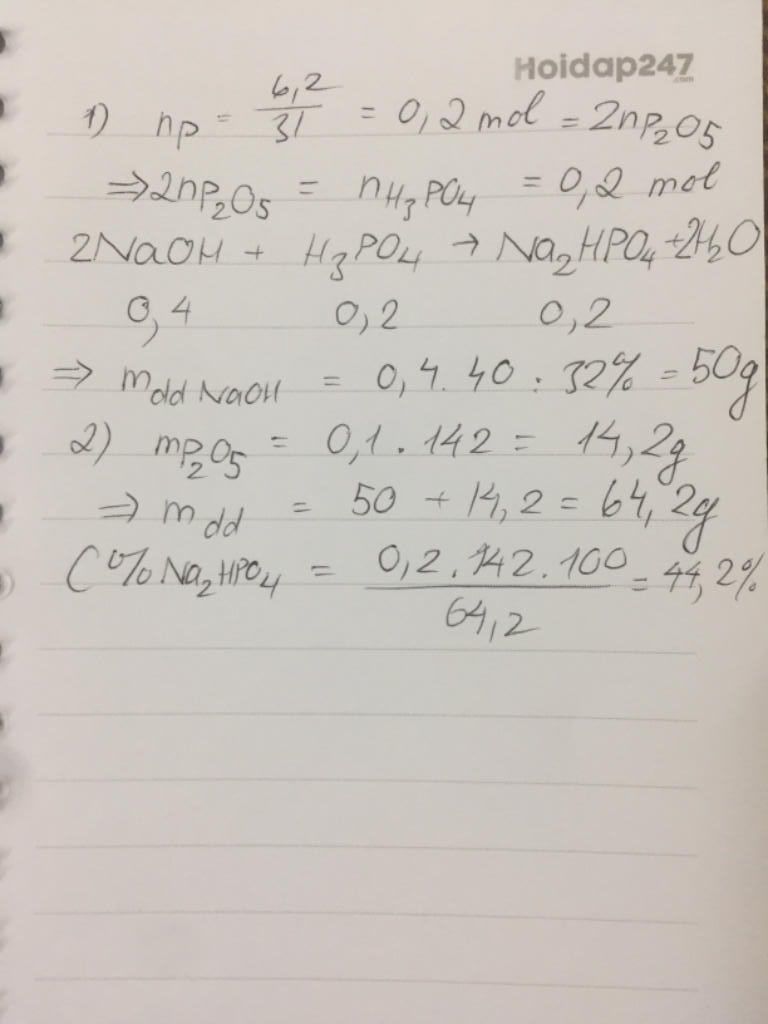 Hoidap247
.com
1) nP = 6,2/31 = 0,2 mol = 2nP₂O₅
⇒ 2nP₂O₅ = nH₃PO₄ = 0,2 mol
2NaOH + H₃PO₄ → Na₂HPO₄ + 2H₂O
0,4 0,2 0,2
⇒ mdd NaOH = 0,4 . 40 : 32% = 50g
2) mP₂O₅ = 0,1 . 142 = 14,2g
⇒ mdd = 50 + 14,2 = 64,2g
C% Na₂HPO₄ = 0,2 . 142 . 100/64,2 = 44,2%